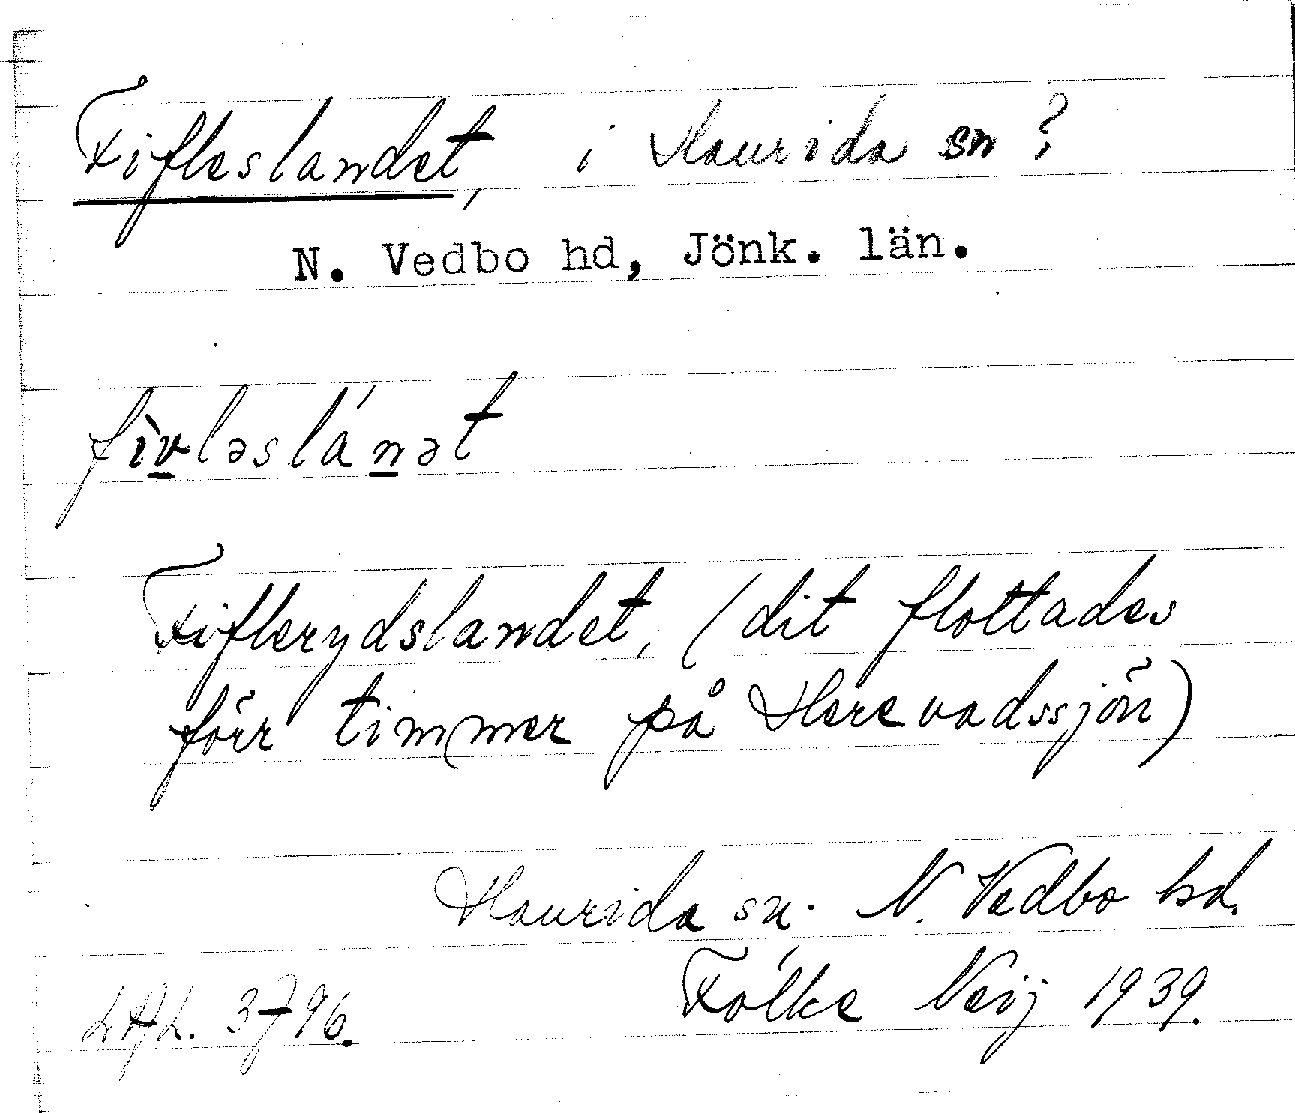 Fifleslandet, i Haurida sn?
N. Vedbo hd, Jönk. län.
fìvləslánət
Fiflerydslandet, (dit flottades
förr timmer på Herevadssjön)
Haurida sn. N. Vedbo hd.
Folke Neij 1939.
LAL. 3796.